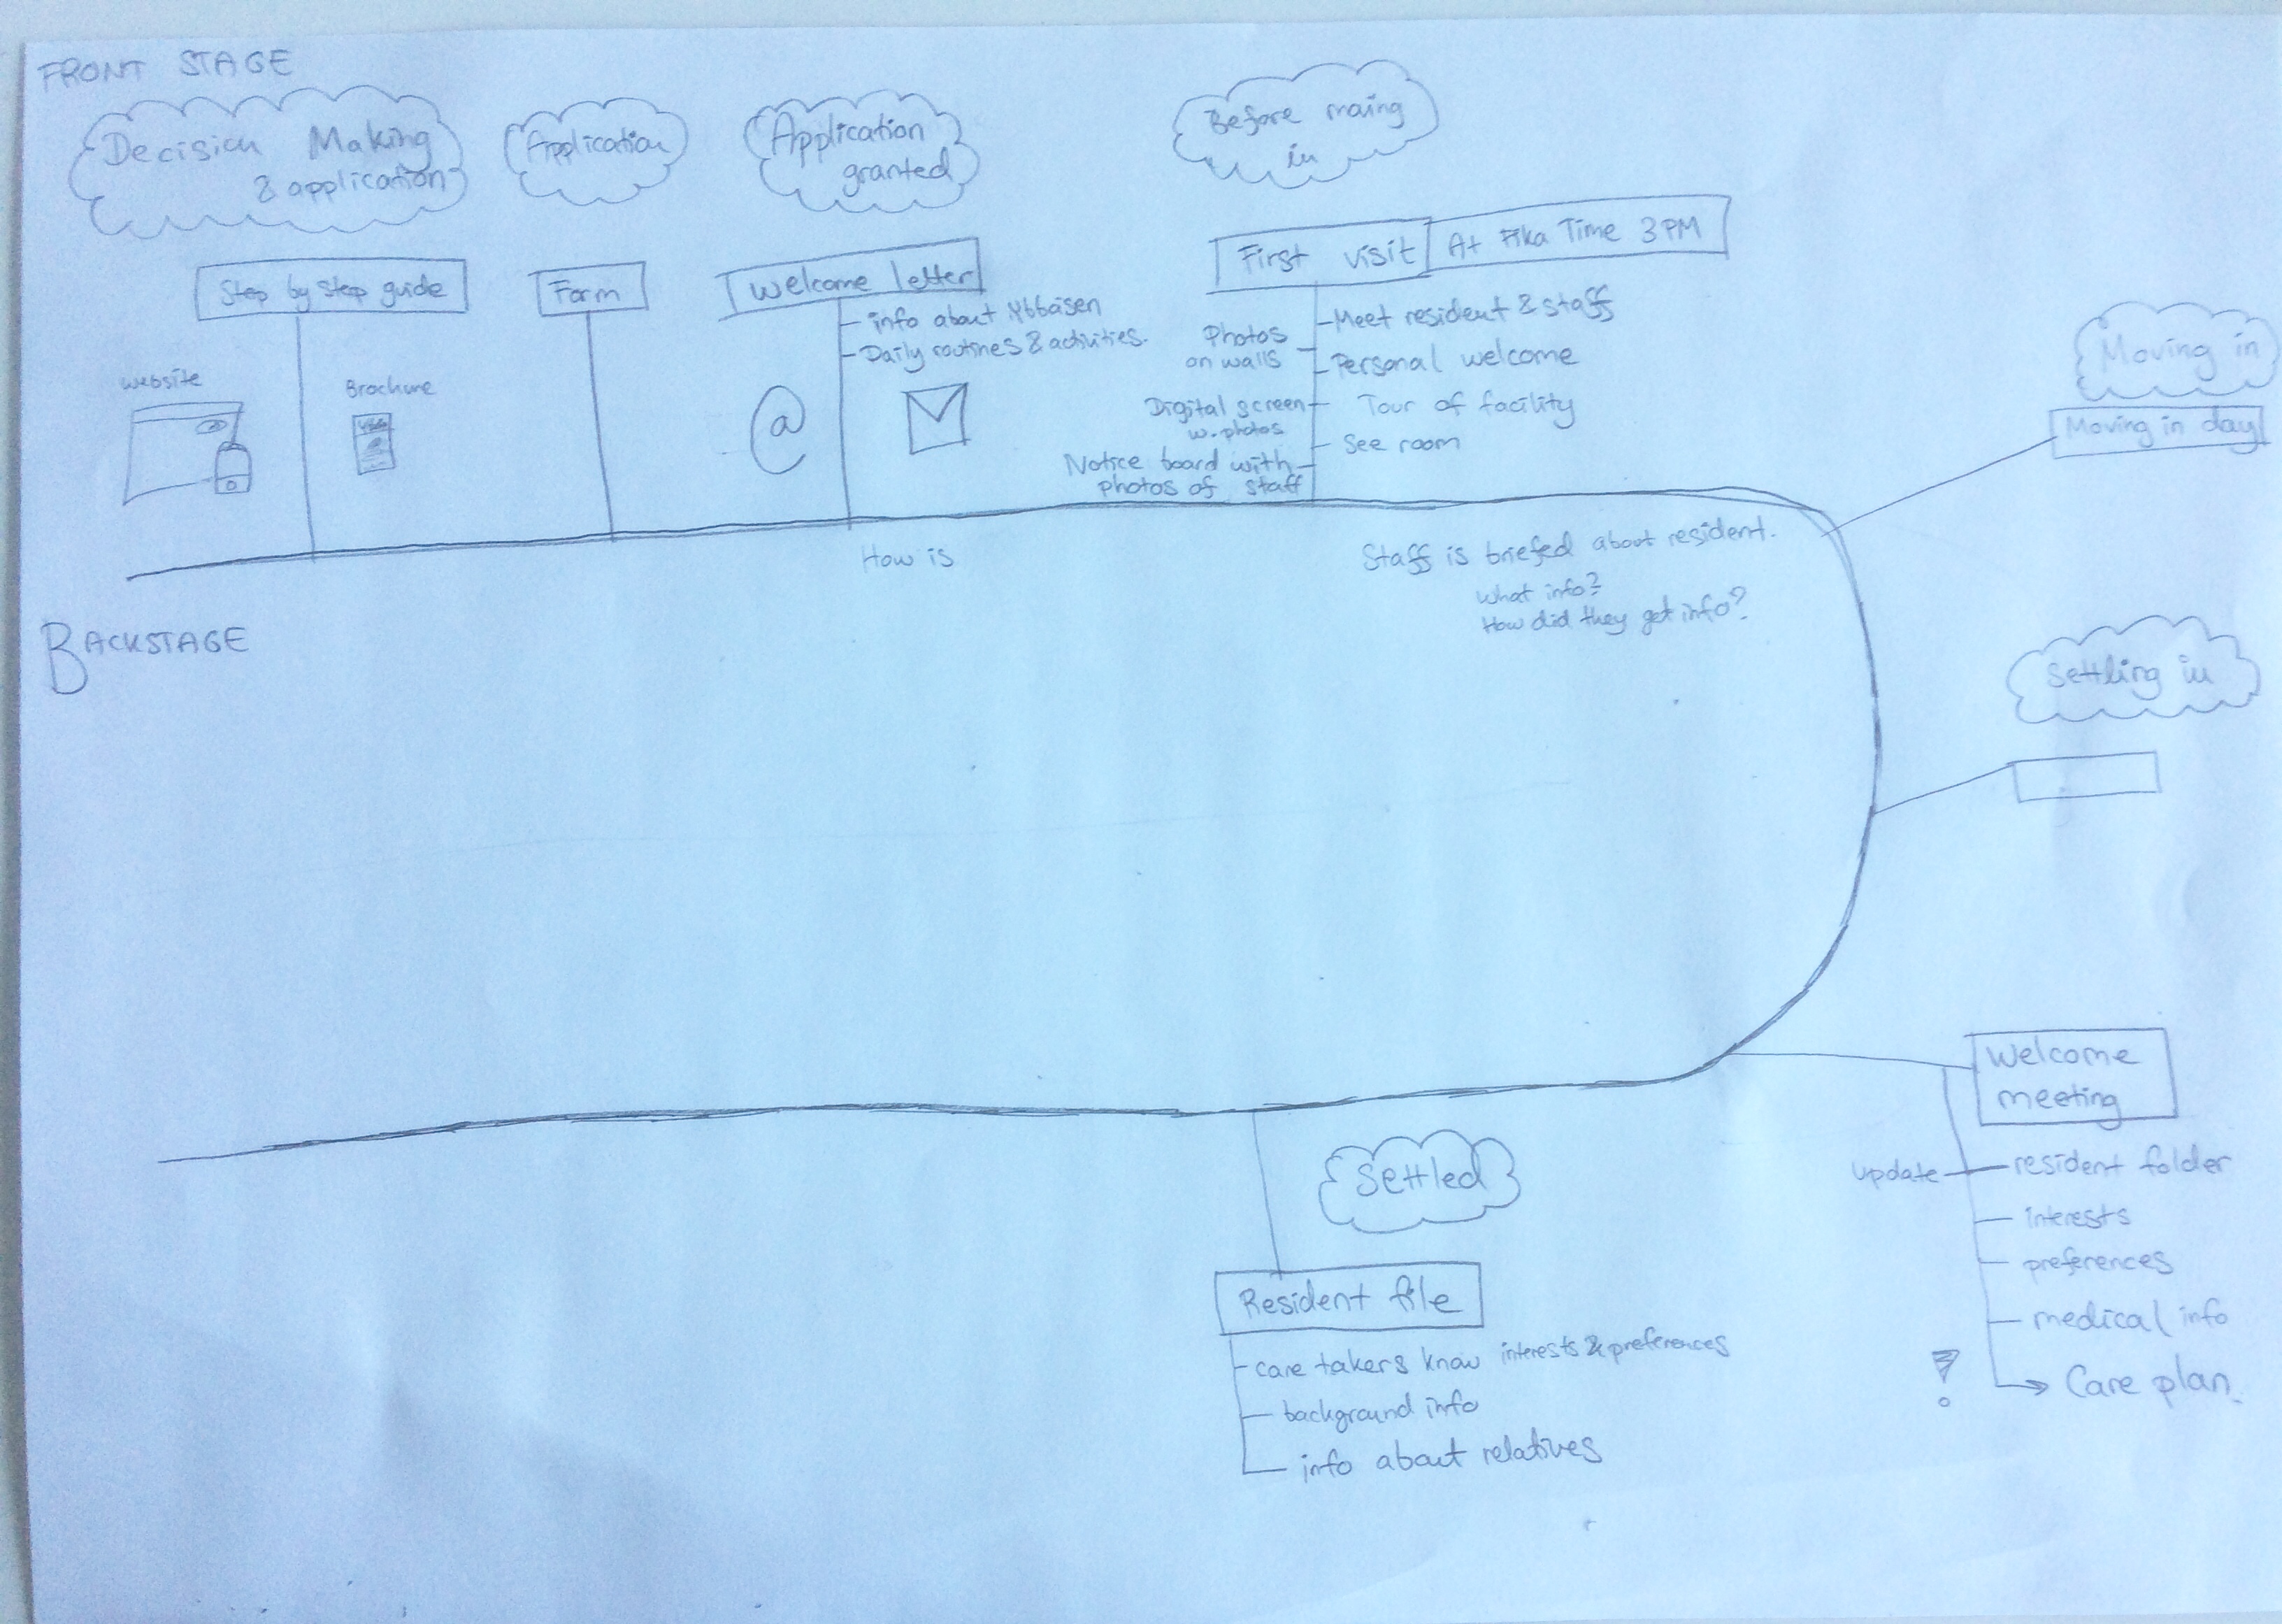 FRONT STAGE
Decision Making
& application
Application
Application
granted
Before moving
in
Step by step guide
Form
Welcome letter
First visit
At Fika Time 3PM
info about
Daily routines & activities.
Website
Brochure
@
Photos
on walls
Digital screen
w. photos
Notice board with
photos of staff
Meet resident & staff
Personal welcome
Tour of facility
See room
Moving in
Moving in day
How is
Staff is briefed about resident.
What info?
How did they get info?
BACKSTAGE
Settling in
Welcome
meeting
update
resident folder
interests
preferences
medical info
Care plan.
Settled
Resident file
care takers know interests & preferences
background info
info about relatives